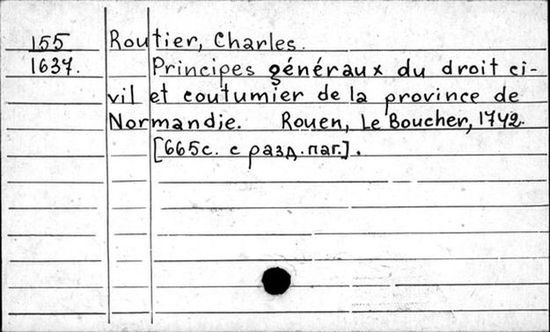 155 Routier, Charles.
1637. Principes généraux du droit ci-
vil et coutumier de la province de
Normandie. Rouen, Le Boucher, 1742.
[665с. с разд. паг.].